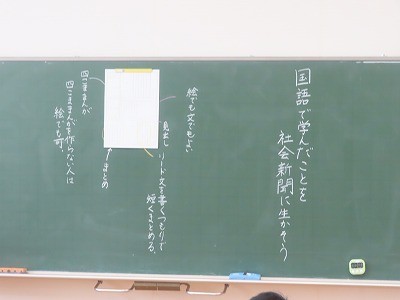 国語で学んだことを
社会新聞に生かそう
絵でも文でもよい
見出し
リード文を書くつもりで
短くまとめる。
まとめ
四コママンガ
四コママンガを作らない人は
絵でも可。